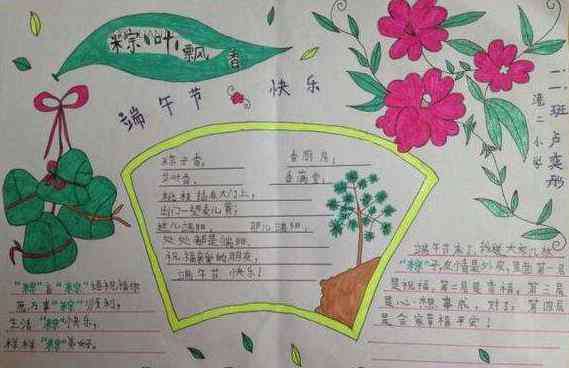 粽叶飘香
端午节 快乐
二、一班 卢奕彤
粽子香, 香厨房,
艾叶香, 香满堂,
桃枝插在大门上,
出门一望麦儿黄;
这儿端阳, 那儿端阳,
处处都是端阳,
祝福亲爱的朋友,
端午节 快乐!
"粽"言"粽"语祝福你
愿万事"粽"顺利,
生活"粽"快乐,
样样"粽"第好。
端午节来了,我送大家
"粽"子,皮儵是外皮,里面第一层
是祝福,第二层是幸福,第三层
是心想事成,对了,第四层
是全家幸福平安!